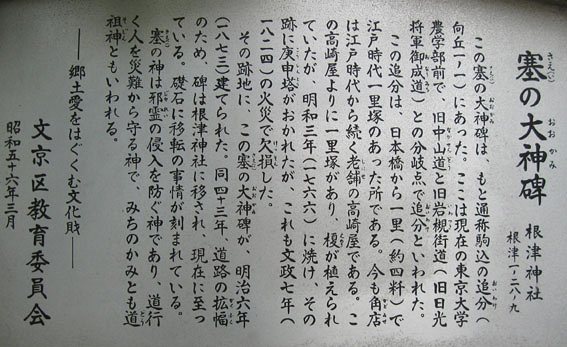 塞の大神碑
さえ
おおかみ
根津神社
根津一ノ二八ノ九
この塞の大神碑は、もと通称駒込の追分（
向丘一ノ一）にあった。ここは現在の東京大学
農学部前で、旧中山道と旧岩槻街道（旧日光
将軍御成道）との分岐点で追分といわれた。
この追分は、日本橋から一里（約四粁）で
江戸時代一里塚のあった所である。今も角店
は江戸時代から続く老舗の高崎屋である。こ
の高崎屋よりに一里塚があり、榎が植えられ
ていたが、明和三年（一七六六）に焼け、その
跡に庚申塔がおかれたが、これも文政七年（
一八二四）の火災で欠損した。
その跡地に、この塞の大神碑が、明治六年
（一八七三）建てられた。同四十三年、道路の拡幅
のため、碑は根津神社に移され、現在に至っ
ている。礎石に移転の事情が刻まれている。
塞の神は邪霊の侵入を防ぐ神であり、道行
く人を災難から守る神で、みちのかみとも道
祖神ともいわれる。
―郷土愛をはぐくむ文化財―
文京区教育委員会
昭和五十六年三月